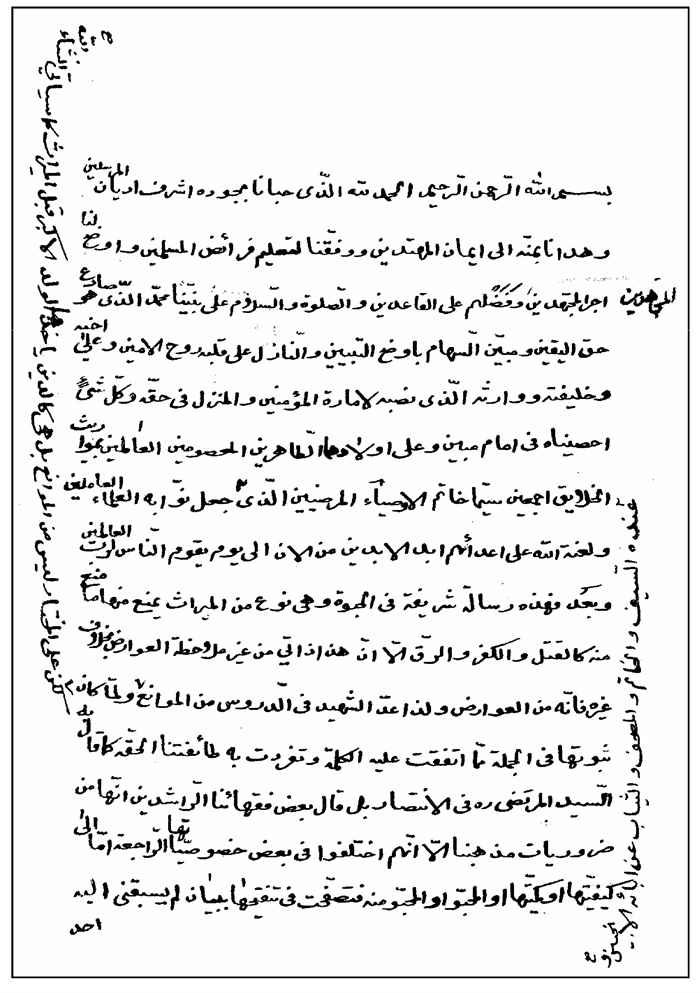 بسم الله الرحمن الرحيم الحمد لله الذى حبانا بجوده اشرف اديان المرسلين
وهدانا بمنه الى ايمان المهتدين ووفقنا لتعليم فرائض المسلمين واوضح لنا
اجر المجتهدين وفضلهم على القاعدين والصلوة والسلام على نبينا محمد الذى هو صادع
المجاهدين
حق اليقين ومبين السهام باوضح التبيين والنازل على قلبه روح الامين وعلى اخيه
وخليفته ووارثه الذى نصبه لامارة المؤمنين والمنزل فى حقه وكل شئ
احصيناه فى امام مبين وعلى اولادهما الطاهرين المعصومين العالمين بمواريث
الخلايق اجمعين سيما خاتم الاوصياء المرضيين الذى جعل نوابه العلماء العاملين
ولعنة الله على اعدائهم ابد الابدين من الان الى يوم يقوم الناس لرب العالمين
وبعد فهذه رسالة شريفة فى الحبوة وهى نوع من الميراث يمنع منها ما منع
منه كالقتل والكفر والرق الا ان هذا ذاتي من غير ملاحظة العوارض بخلاف
غيره فانه من العوارض ولذا عد الشهيد فى الدروس من الموانع ولما كان
ثبوتها فى الجملة مما اتفقت عليه الكلمة وتفردت به طائفتنا الحقه كما قال به
السيد المرتضى ره فى الانتصار بل قال بعض فقهائنا الراشدين انها من
ضروريات مذهبنا الا انهم اختلفوا فى بعض خصوصياتها الراجعة اما الى
كيفيتها او كميتها او المحبو او المحبو منه فتصفحت فى تنقيحها ببيان لم يسبقنى اليه
احد
لكن على المختار ليس من الموانع بل هى كالدين ياخذها الولد الاكبر قبل الميراث كما سياتي انشاء الله
عنده السيف والخاتم والمصحف والثياب عن